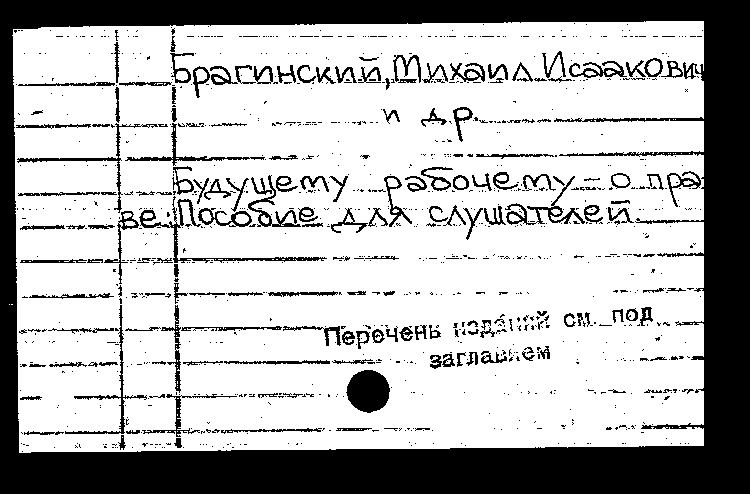 Брагинский, Михаил Исаакович
и др.
Будущему рабочему - о пра-
ве: Пособие для слушателей.
Перечень изданий см. под
заглавием